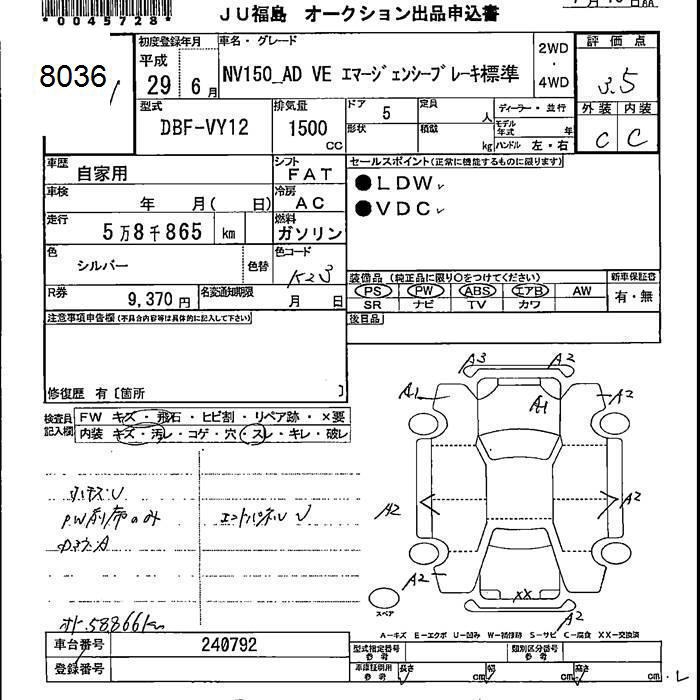 *0045728*
JU福島 オークション出品申込書
8036
初度登録年月
平成
29年 6月
車名・グレード
NV150_AD VE エマージェンシーブレーキ標準
2WD
・
4WD
評価点
3.5
外装 内装
C C
型式
DBF-VY12
排気量
1500
CC
ドア 5
定員 人
形状
積載 kg
ディーラー・並行
モデル年式 年
ハンドル 左・右
車歴
自家用
シフト
FAT
車検
年 月( 日)
冷房
AC
走行
5万8千865 km
燃料
ガソリン
色
シルバー
色替
色コード
K23
R券
9,370円
名変通知期限
月 日
セールスポイント(正常に機能するものに限ります)
●LDW
●VDC
装備品 (純正品に限り○をつけてください)
PS PW ABS エアB AW
SR ナビ TV カワ
新車保証書
有・無
後日品
注意事項申告欄(不具合内容等は具体的に記入して下さい)
修復歴 有〔箇所 〕
検査員記入欄
FW キズ・飛石・ヒビ割・リペア跡・×要
内装 キズ・汚レ・コゲ・穴・スレ・キレ・破レ
PW前席のみ
オト.58866km
A3 A2
A1 A1 A2
A2 A2
A2
XX
A2
スペア
A-キズ E-エクボ U-凹み W-補修跡 S-サビ C-腐食 XX-交換済
車台番号 240792
登録番号
型式指定番号 参考
類別区分番号 参考
車庫証明用 参考
長さ cm 幅 cm 高さ cm